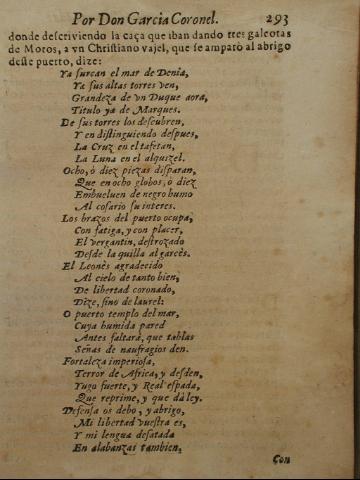 Por Don Garcia Coronel. 293
donde descriviendo la caça que iban dando tres galeotas
de Moros, a vn Christiano vajel, que se amparò al abrigo
deste puerto, dize:
Ya surcan el mar de Denia,
Ya sus altas torres ven,
Grandeza de vn Duque aora,
Titulo ya de Marques.
De sus torres los descubren,
Y en distinguiendo despues,
La Cruz en el tafetan,
La Luna en el alquizel.
Ocho, ò diez piezas disparan,
Que en ocho globos, ò diez
Embueluen de negro humo
Al cosario su interes.
Los brazos del puerto ocupa,
Con fatiga, y con placer,
El vergantin, destrozado
Desde la quilla al garcès.
El Leonès agradecido
Al cielo de tanto bien,
De libertad coronado,
Dize, sino de laurel:
O puerto templo del mar,
Cuya humida pared
Antes faltarà, que tablas
Señas de naufragios den.
Fortaleza imperiosa,
Terror de Africa, y desden,
Yugo fuerte, y Real espada,
Que reprime, y que dà ley.
Defensa os debo, y abrigo,
Mi libertad vuestra es,
Y mi lengua desatada
En alabanzas tambien,
Con